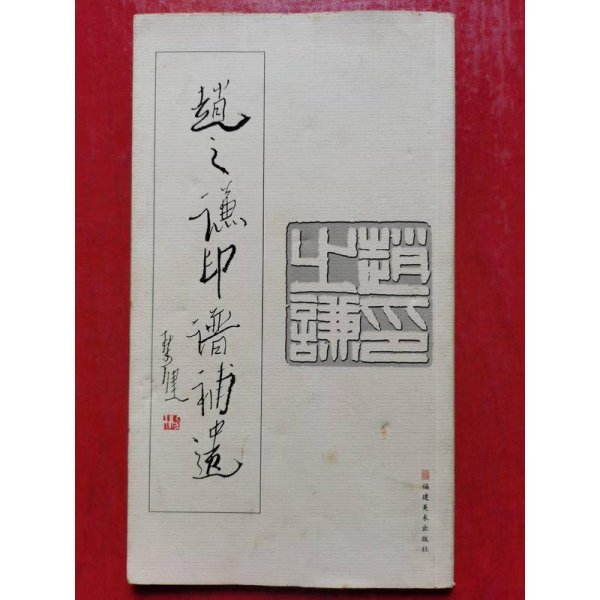 趙之謙印譜補遺
趙印之謙
福建美术出版社